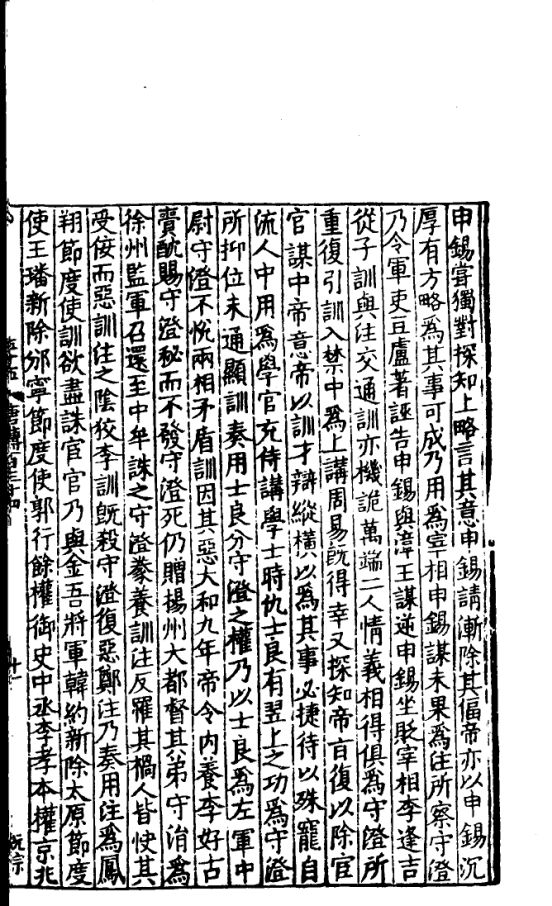 申錫嘗獨對探知上略言其意申錫請漸除其偪帝亦以申錫沉
厚有方略爲其事可成乃用爲宰相申錫謀未果爲注所察守澄
乃令軍吏豆盧著誣告申錫與漳王謀逆申錫坐貶宰相李逢吉
從子訓與注交通訓亦機詭萬端二人情義相得俱爲守澄所
重復引訓入禁中爲上講周易旣得幸又探知帝旨復以除宦
官謀中帝意帝以訓才辯縱橫以爲其事必捷待以殊寵自
流人中用爲學官充侍講學士時仇士良有翌上之功爲守澄
所抑位未通顯訓奏用士良分守澄之權乃以士良爲左軍中
尉守澄不悅兩相矛盾訓因其惡大和九年帝令內養李好古
賫酖賜守澄秘而不發守澄死仍贈揚州大都督其弟守涓爲
徐州監軍召還至中牟誅之守澄豢養訓注反罹其禍人皆快其
受佞而惡訓注之陰狡李訓旣殺守澄復惡鄭注乃奏用注爲鳳
翔節度使訓欲盡誅宦官乃與金吾將軍韓約新除太原節度
使王璠新除邠寧節度使郭行餘權御史中丞李孝本權京兆